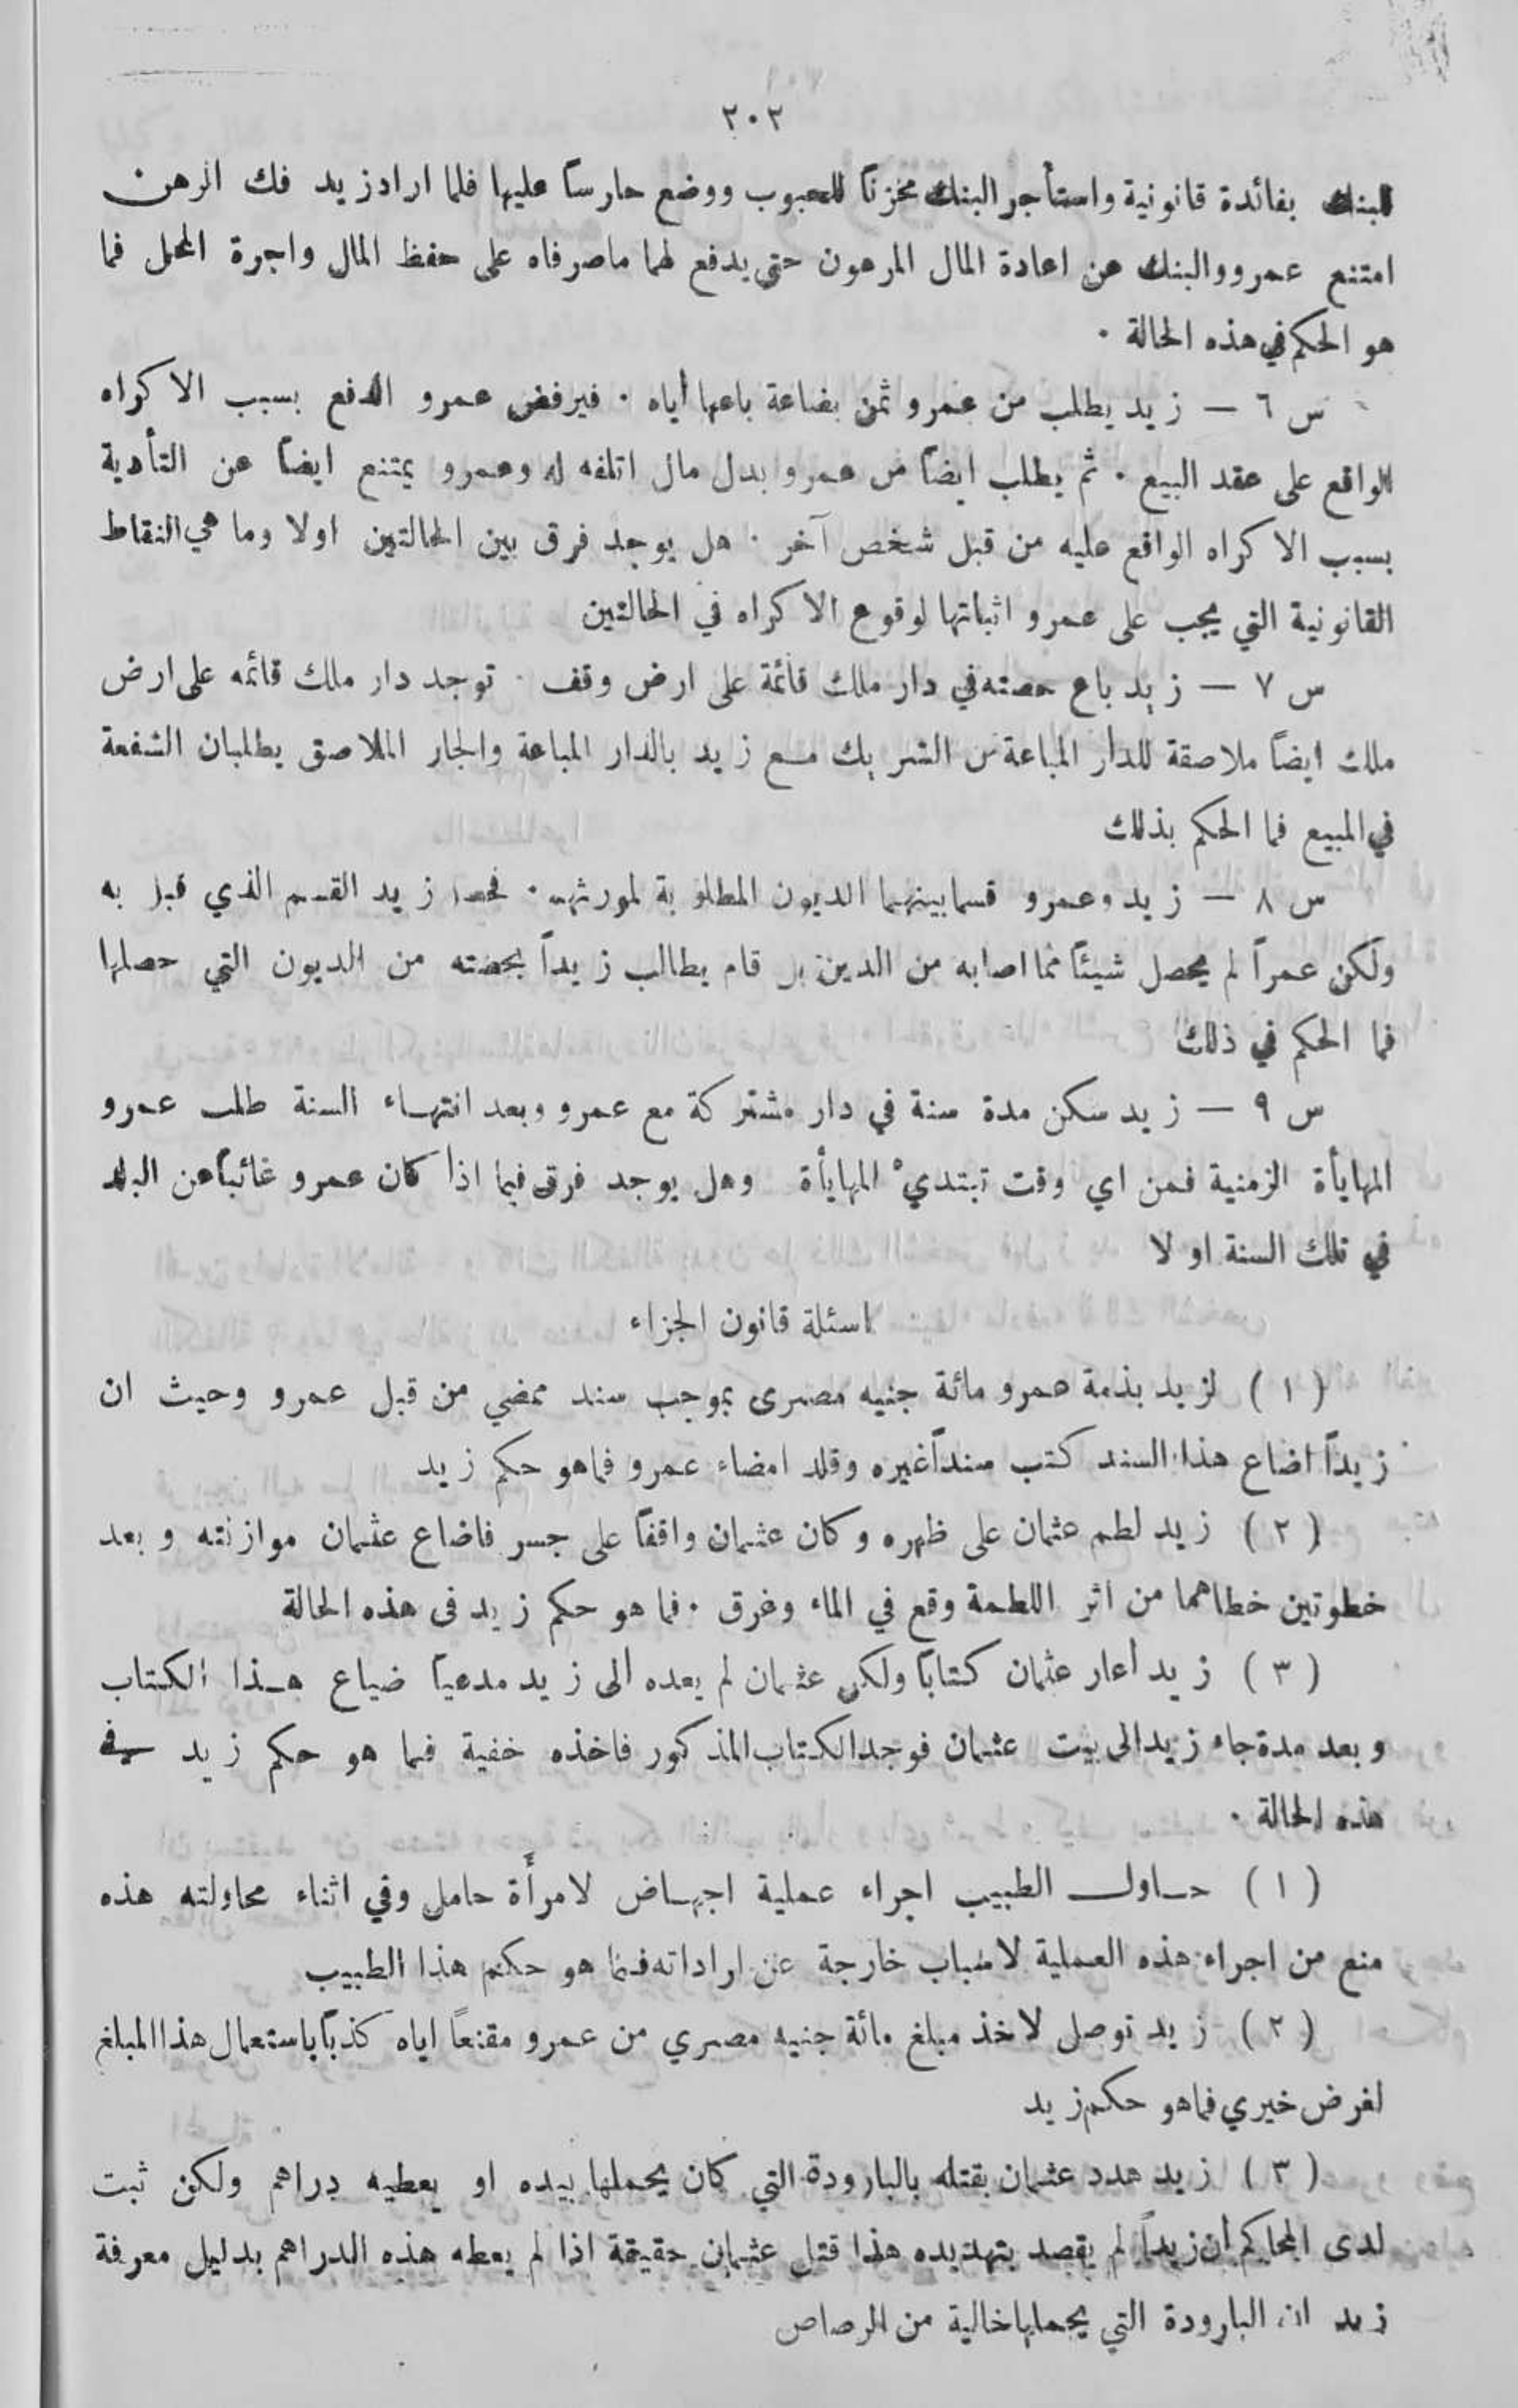 ٢٠٢
للبنك بفائدة قانونية واستأجر البنك مخزناً للحبوب ووضع حارساً عليها فلما اراد زيد فك الرهن
امتنع عمرو والبنك عن اعادة المال المرهون حتى يدفع لهما ماصرفاه على حفظ المال واجرة المحل فما
هو الحكم في هذه الحالة ٠
س ٦ — زيد يطلب من عمرو ثمن بضاعة باعها أياه ٠ فيرفض عمرو الدفع بسبب الاكراه
الواقع على عقد البيع ٠ ثم يطلب ايضاً من عمرو بدل مال اتلفه له وعمرو يمتنع ايضاً عن التأدية
بسبب الاكراه الواقع عليه من قبل شخص آخر ٠ هل يوجد فرق بين الحالتين اولا وما هي النقاط
القانونية التي يجب على عمرو اثباتها لوقوع الاكراه في الحالتين
س ٧ — زيد باع حصته في دار ملك قائمة على ارض وقف ٠ توجد دار ملك قائمه على ارض
ملك ايضاً ملاصقة للدار المباعة من الشريك مع زيد بالدار المباعة والجار الملاصق يطلبان الشفعة
في المبيع فما الحكم بذلك
س ٨ — زيد وعمرو قسما بينهما الديون المطلوبة لمورثهم ٠ فحصل زيد القسم الذي قبل به
ولكن عمراً لم يحصل شيئاً مما اصابه من الدين بل قام يطالب زيداً بحصته من الديون التي حصلها
فما الحكم في ذلك
س ٩ — زيد سكن مدة سنة في دار مشتركة مع عمرو وبعد انتهاء السنة طلب عمرو
المهايأة الزمنية فمن اي وقت تبتدئ المهايأة وهل يوجد فرق فيما اذا كان عمرو غائباً عن البلد
في تلك السنة او لا
اسئلة قانون الجزاء
( ١ ) لزيد بذمة عمرو مائة جنيه مصرى بموجب سند ممضي من قبل عمرو وحيث ان
زيداً اضاع هذا السند كتب سنداً غيره وقلد امضاء عمرو فماهو حكم زيد
( ٢ ) زيد لطم عثمان على ظهره وكان عثمان واقفاً على جسر فاضاع عثمان موازنته وبعد
خطوتين خطاهما من اثر اللطمة وقع في الماء وغرق ٠ فما هو حكم زيد فى هذه الحالة
( ٣ ) زيد أعار عثمان كتاباً ولكن عثمان لم يعده الى زيد مدعياً ضياع هذا الكتاب
وبعد مدة جاء زيد الى بيت عثمان فوجد الكتاب المذكور فاخذه خفية فما هو حكم زيد في
هذه الحالة ٠
( ١ ) حاول الطبيب اجراء عملية اجهاض لامرأة حامل وفي اثناء محاولته هذه
منع من اجراء هذه العملية لاسباب خارجة عن اراداته فما هو حكم هذا الطبيب
( ٢ ) زيد توصل لاخذ مبلغ مائة جنيه مصري من عمرو مقنعاً اياه كذباً باستعمال هذا المبلغ
لغرض خيري فماهو حكم زيد
( ٣ ) زيد هدد عثمان بقتله بالبارودة التي كان يحملها بيده او يعطيه دراهم ولكن ثبت
لدى المحاكم أن زيداً لم يقصد بتهديده هذا قتل عثمان حقيقة اذا لم يعطه هذه الدراهم بدليل معرفة
زيد ان البارودة التي يحملها خالية من الرصاص